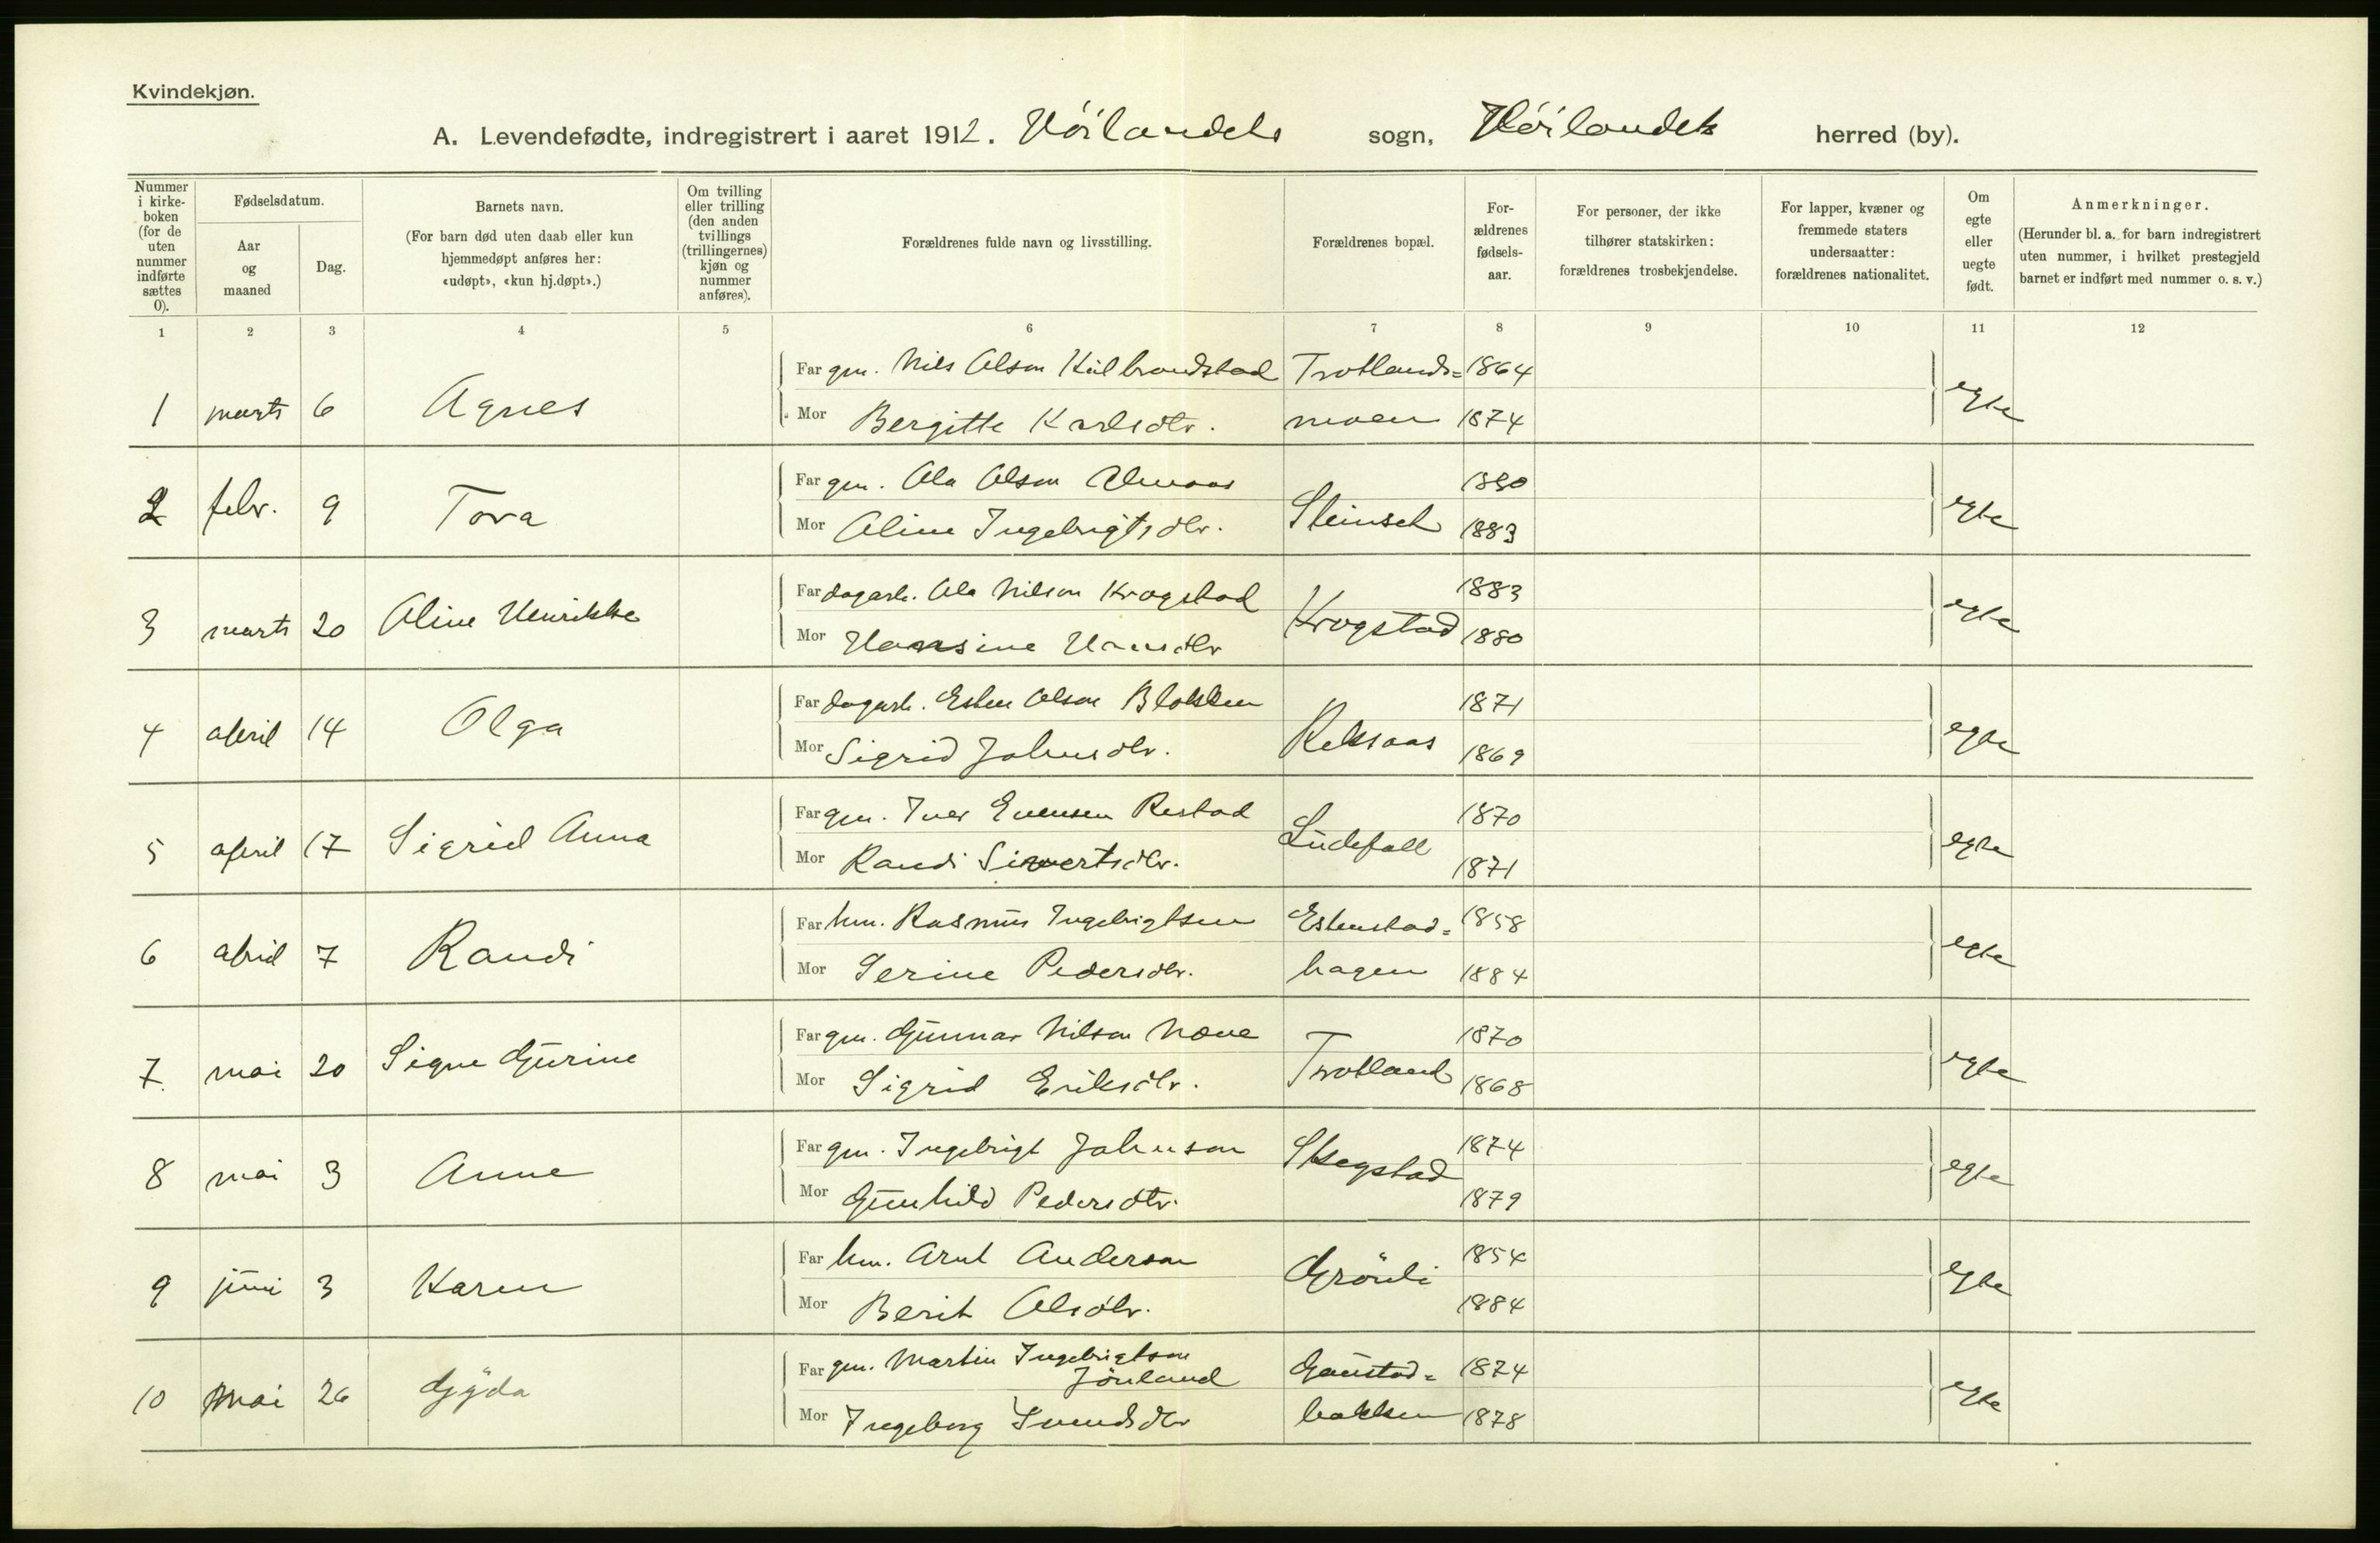 Kvindekjøn.
A. Levendefødte, indregistrert i aaret 1912. Höilandets sogn, Höilandets herred (by).
Nummer i kirkeboken (for de uten nummer indførte sættes 0).
Fødselsdatum.
Aar og maaned
Dag.
Barnets navn.
(For barn død uten daab eller kun hjemmedøpt anføres her: «udøpt», «kun hj.døpt».)
Om tvilling eller trilling (den anden tvillings (trillingernes) kjøn og nummer anføres).
Forældrenes fulde navn og livsstilling.
Forældrenes bopæl.
Forældrenes fødselsaar.
For personer, der ikke tilhører statskirken: forældrenes trosbekjendelse.
For lapper, kvæner og fremmede staters undersaatter: forældrenes nationalitet.
Om egte eller uegte født.
Anmerkninger.
(Herunder bl. a. for barn indregistrert uten nummer, i hvilket prestegjeld barnet er indført med nummer o. s. v.)
1 2 3 4 5 6 7 8 9 10 11 12
Far gm. Nils Olsen Kulbrandstad Trotlands= 1864
1 marts 6 Agnes egte
Mor Bergitte Karlsdtr. moen 1874
Far gm. Ola Olsen Almaas 1880
2 febr. 9 Tora Steinset egte
Mor Aline Ingebrigtsdtr. 1883
Far dagarb. Ola Nilsen Krogstad 1883
3 marts 20 Aline Henrikke Krogstad egte
Mor Hansine Hansdtr 1880
Far dagarb. Esten Olsen Blokken 1871
4 april 14 Olga Reksaas egte
Mor Sigrid Johnsdtr. 1869
Far gm. Iver Evensen Restad 1870
5 april 17 Sigrid Anna Ludefall egte
Mor Randi Sivertsdtr. 1871
Far hm. Rasmus Ingebrigtsen Estenstad= 1858
6 april 7 Randi egte
Mor Serine Pedersdtr. hagen 1884
Far gm. Gunnar Nilsen Mone 1870
7 mai 20 Signe Gurine Trotland egte
Mor Sigrid Eriksdtr. 1868
Far gm. Ingebrigt Johnson 1874
8 mai 3 Anne Skegstad egte
Mor Gunhild Pedersdtr. 1879
Far hm. Arnt Anderson 1854
9 juni 3 Karen Grönli egte
Mor Berit Olsdtr. 1884
Far gm. Martin Ingebrigtson
Jönland Gaustad= 1874
10 mai 26 Gyda egte
Mor Ingeborg Svendsdtr bakken 1878